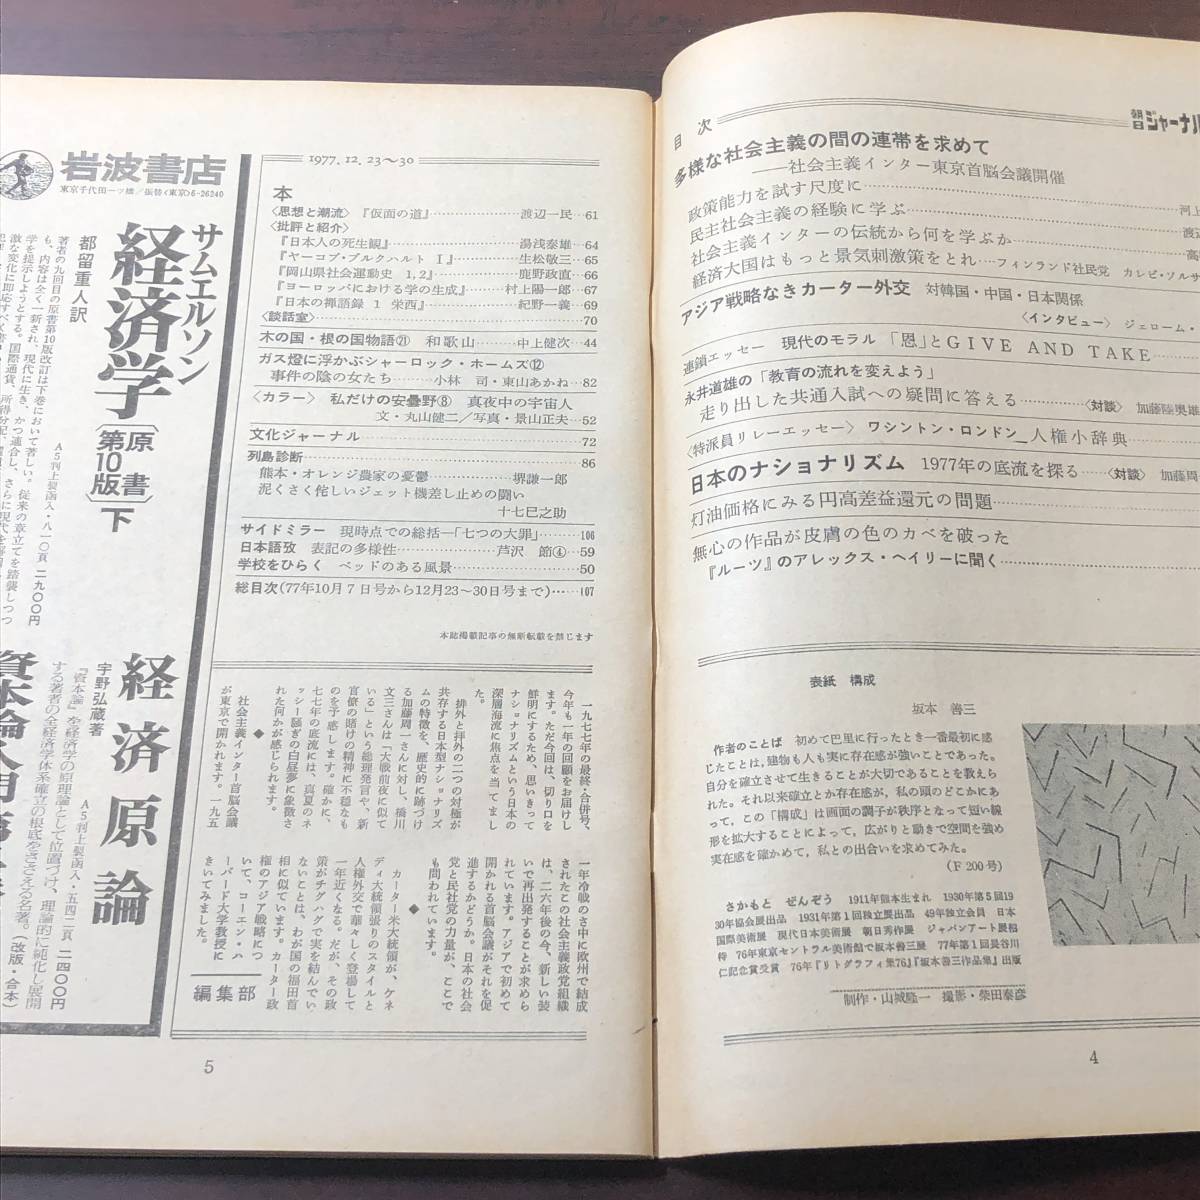 目次
朝日ジャーナル
多様な社会主義の間の連帯を求めて
――社会主義インター東京首脳会議開催
政策能力を試す尺度に………河上
民主社会主義の経験に学ぶ………渡辺
社会主義インターの伝統から何を学ぶか………高
経済大国はもっと景気刺激策をとれ…フィンランド社民党 カレビ・ソルサ
アジア戦略なきカーター外交 対韓国・中国・日本関係
〈インタビュー〉 ジェローム・
連鎖エッセー 現代のモラル 「恩」とGIVE AND TAKE………
永井道雄の「教育の流れを変えよう」
走り出した共通入試への疑問に答える………〈対談〉 加藤陸奥雄
〈特派員リレーエッセー〉 ワシントン・ロンドン―人権小辞典………
日本のナショナリズム 1977年の底流を探る……〈対談〉 加藤周
灯油価格にみる円高差益還元の問題………
無心の作品が皮膚の色のカベを破った
『ルーツ』のアレックス・ヘイリーに聞く………
表紙 構成
坂本 善三
作者のことば 初めて巴里に行ったとき一番最初に感
じたことは,建物も人も実に存在感が強いことであった。
自分を確立させて生きることが大切であることを教えら
れた。それ以来確立とか存在感が,私の頭のどこかにあ
って,この「構成」は画面の調子が秩序となって短い線
形を拡大することによって,広がりと動きで空間を強め
実在感を確かめて,私との出合いを求めてみた。
(F 200号)
さかもと ぜんぞう 1911年熊本生まれ 1930年第5回19
30年協会展出品 1931年第1回独立展出品 49年独立会員 日本
国際美術展 現代日本美術展 朝日秀作展 ジャパンアート展招
待 76年東京セントラル美術館で坂本善三展 77年第1回長谷川
仁記念賞受賞 76年『リトグラフィ集76』『坂本善三作品集』出版
制作・山城隆一 撮影・柴田泰彦
4
1977.12.23〜30
本
〈思想と潮流〉『仮面の道』………渡辺一民…61
〈批評と紹介〉
『日本人の死生観』………湯浅泰雄…64
『ヤーコプ・ブルクハルト Ⅰ』………生松敬三…65
『岡山県社会運動史 1,2』………鹿野政直…66
『ヨーロッパにおける学の生成』………村上陽一郎…67
『日本の禅語録 1 栄西』………紀野一義…69
〈談話室〉………70
木の国・根の国物語㉑ 和歌山………中上健次…44
ガス燈に浮かぶシャーロック・ホームズ⑫
事件の陰の女たち………小林 司・東山あかね…82
〈カラー〉 私だけの安曇野⑧ 真夜中の宇宙人
文・丸山健二／写真・景山正夫…52
文化ジャーナル………72
列島診断………86
熊本・オレンジ農家の憂鬱………堺謙一郎
泥くさく侘しいジェット機差し止めの闘い
十七巳之助
サイドミラー 現時点での総括―「七つの大罪」………106
日本語攷 表記の多様性………芦沢 節④…59
学校をひらく ベッドのある風景………50
総目次(77年10月7日号から12月23〜30日号まで)……107
本誌掲載記事の無断転載を禁じます
一九七七年の最終・合併号、
今年も一年の回顧をお届けし
ます。ただ今回は、切り口を
鮮明にするため、思いきって
ナショナリズムという日本の
深層海流に焦点を当てまし
た。
排外と拝外の二つの対極が
共存する日本型ナショナリズ
ムの特徴を、歴史的に跡づけ
る加藤周一さんに対し、橋川
文三さんは「大戦前夜に似て
いる」という総理発言や、新
官僚の賭けの精神に不穏なも
のを予感します。確かに、
七七年の底流には、真夏のネ
ッシー騒ぎの白昼夢に象徴さ
れた何かが感じられます。
◆
社会主義インター首脳会議
が東京で開かれます。一九五
一年冷戦のさ中に欧州で結成
されたこの社会主義政党組織
は、二六年後の今、新しい装
いで再出発することが求めら
れています。アジアで初めて
開かれる首脳会議がそれを促
進するかどうか。日本の社会
党と民社党の力量が、ここで
も問われています。
◆
カーター米大統領が、ケネ
ディ大統領張りのスタイルと
人権外交で華々しく登場して
一年近くなる。だが、その政
策がチグハグで実を結んでい
ないことは、わが国の福田首
相に似ています。カーター政
権のアジア戦略につ
いて、コーエン・ハ
ーバード大学教授に
きいてみました。
編集部
5
岩波書店
東京千代田一ツ橋／振替(東京)6-26240
サムエルソン
経済学〔原書第10版〕下
都留重人訳
A5判上製函入・八一〇頁 二九〇〇円
著者の九回目の原書第10版改訂は下巻において著しい。従来の章立てを踏襲しつつ
も、内容は全く一新され、現代に生き、かつ適合し、さらに現代を解明
経済原論
宇野弘蔵著
A5判上製函入・五四二頁 二四〇〇円
『資本論』を経済学の原理論として位置づけ、理論的に純化し展開
する著者の全経済学体系確立の根底をささえる名著。(改版・合本)